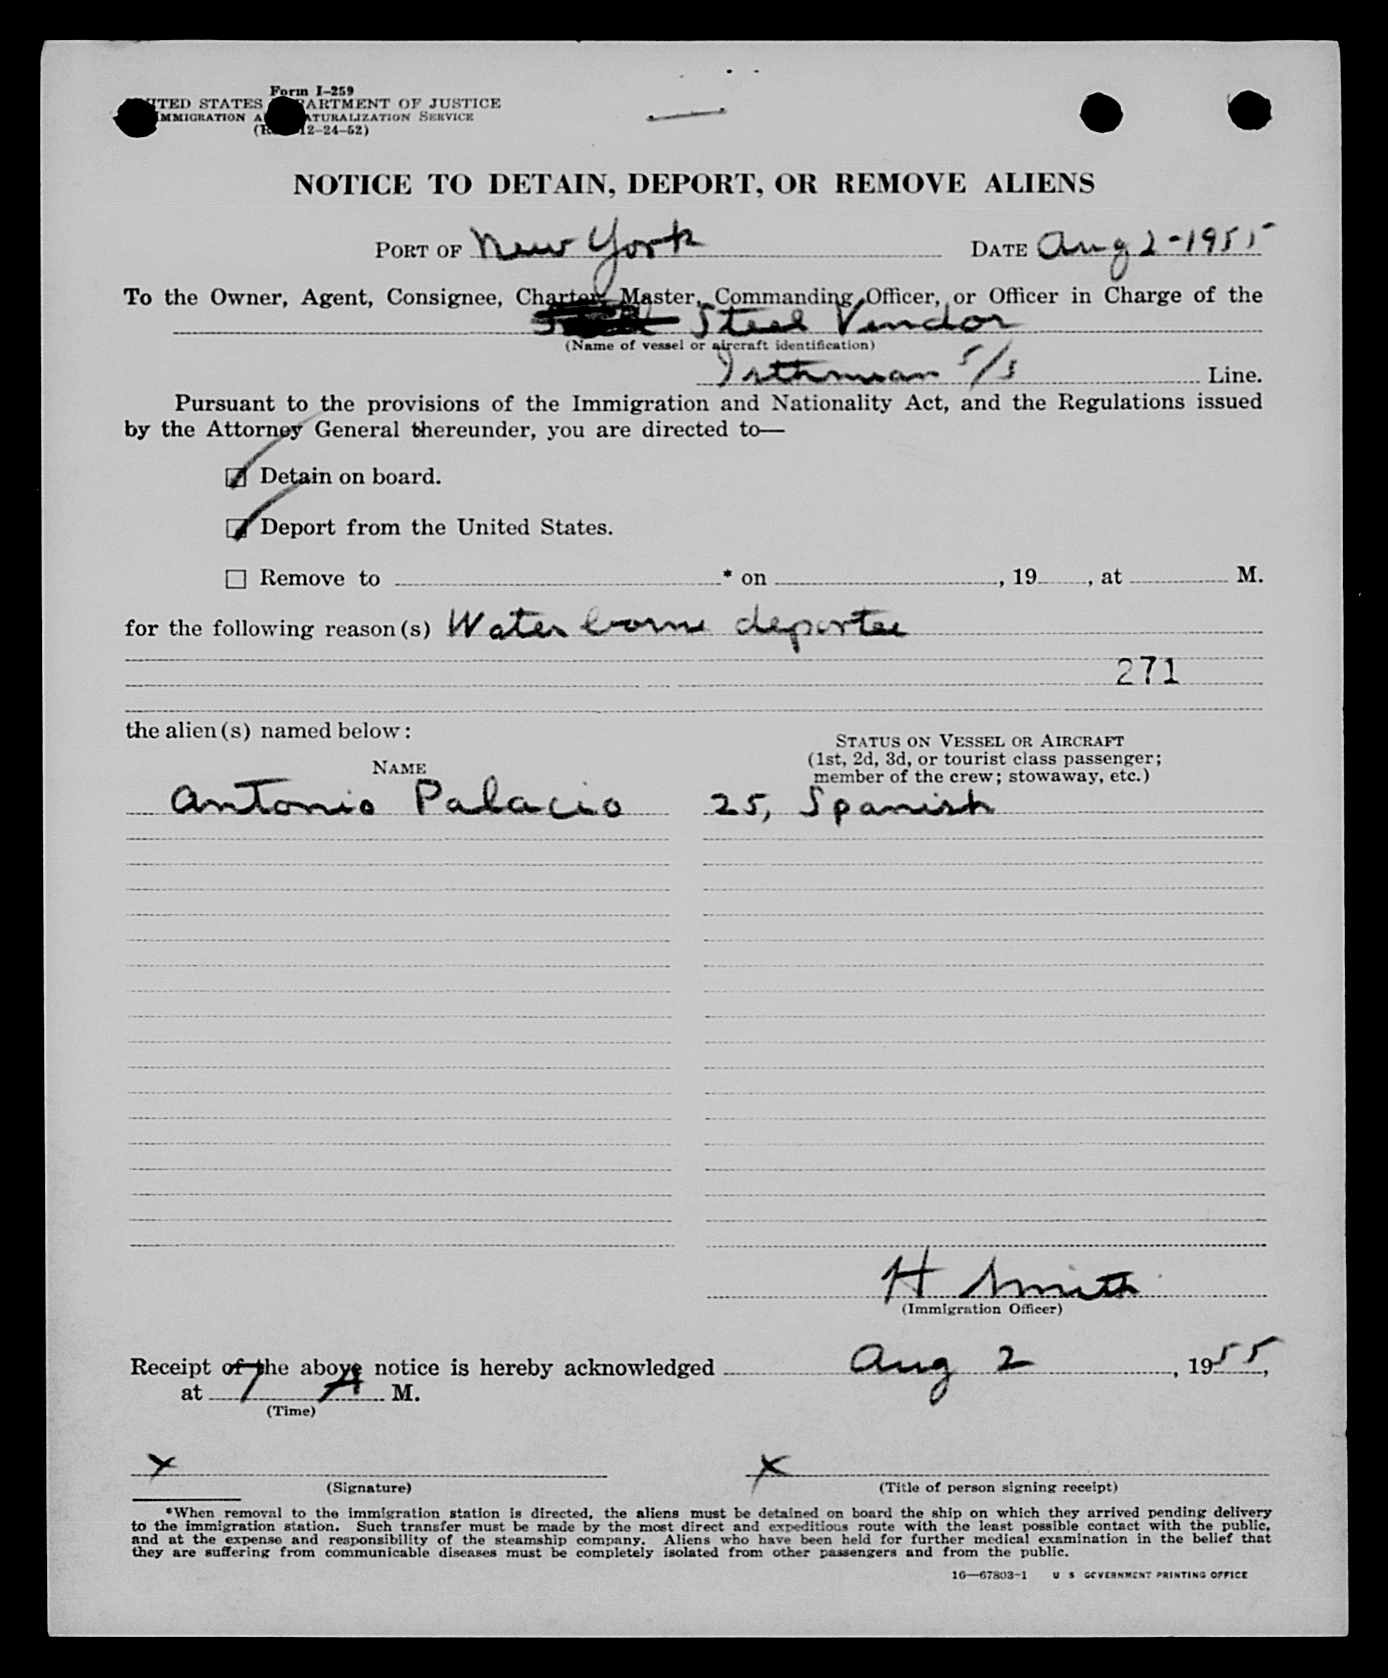 Form I-259
UNITED STATES DEPARTMENT OF JUSTICE
IMMIGRATION AND NATURALIZATION SERVICE
12-24-52)
NOTICE TO DETAIN, DEPORT, OR REMOVE ALIENS
PORT OF New York DATE Aug 2-1955
To the Owner, Agent, Consignee, Charter, Master, Commanding Officer, or Officer in Charge of the
Steel Vendor
(Name of vessel or aircraft identification)
Isthmian S/S Line.
Pursuant to the provisions of the Immigration and Nationality Act, and the Regulations issued
by the Attorney General thereunder, you are directed to—
Detain on board.
Deport from the United States.
Remove to * on , 19 , at M.
for the following reason(s) Water borne deportee
271
the alien(s) named below:
STATUS ON VESSEL OR AIRCRAFT
(1st, 2d, 3d, or tourist class passenger;
NAME member of the crew; stowaway, etc.)
Antonio Palacio 25, Spanish
H Smith
(Immigration Officer)
Receipt of the above notice is hereby acknowledged Aug 2, 1955,
at 7 A M.
(Time)
x x
(Signature) (Title of person signing receipt)
*When removal to the immigration station is directed, the aliens must be detained on board the ship on which they arrived pending delivery
to the immigration station. Such transfer must be made by the most direct and expeditious route with the least possible contact with the public,
and at the expense and responsibility of the steamship company. Aliens who have been held for further medical examination in the belief that
they are suffering from communicable diseases must be completely isolated from other passengers and from the public.
16—67803-1 U S GOVERNMENT PRINTING OFFICE